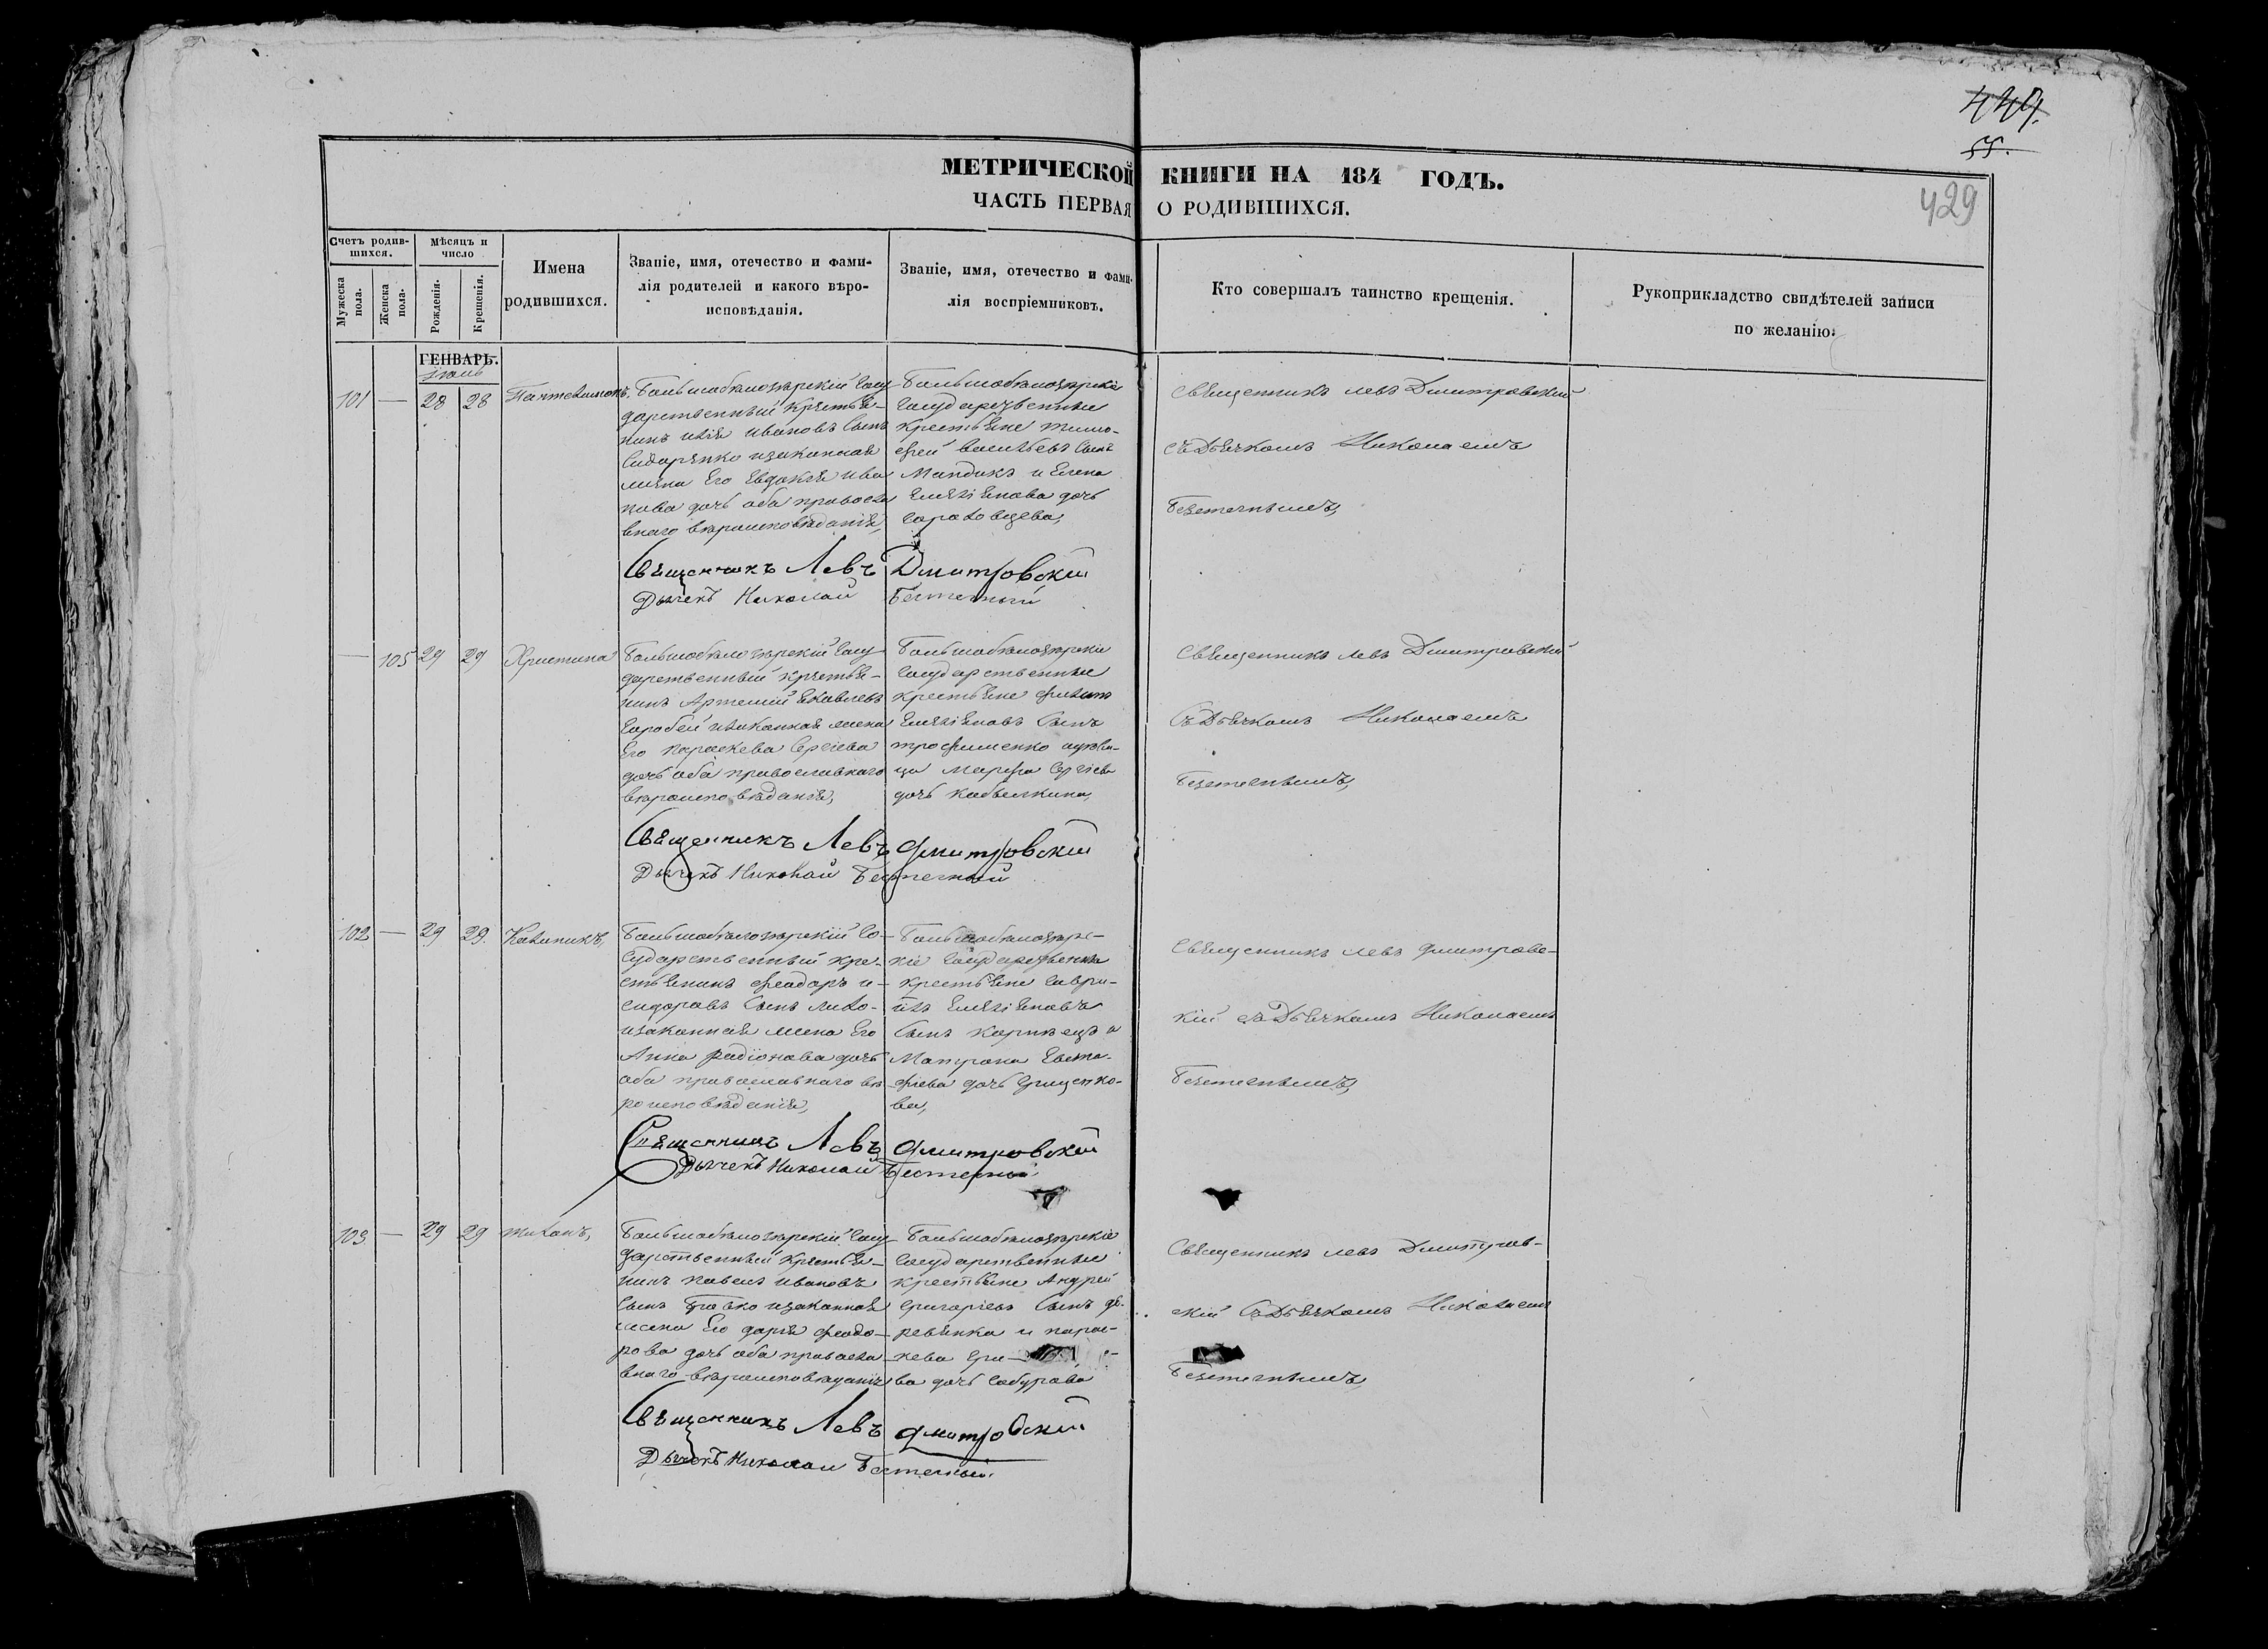 449.
55.
429
МЕТРИЧЕСКОЙ КНИГИ НА 184 ГОДЪ.
ЧАСТЬ ПЕРВАЯ О РОДИВШИХСЯ.
Счетъ родив-
шихся.
Мужеска
пола.
Женска
пола.
Мѣсяцъ и
число
Рожденія.
Крещенія.
Имена
родившихся.
Званіе, имя, отечество и фами-
лія родителей и какого вѣро-
исповѣданія.
Званіе, имя, отечество и фами-
лія воспріемниковъ.
Кто совершалъ таинство крещенія.
Рукоприкладство свидѣтелей записи
по желанію.
ГЕНВАРЬ.
Іюль
101 — 28 28
Пантелимонъ,
Большобѣлозѣрскій Госу
дарственный крестья-
нинъ Илія Ивановъ сынъ
Сидоренко изаконная
жена Его Евдокія Ива
нова дочь оба правосла
внаго вѣроисповѣданія,
Большобѣлозѣрскіе
Государственные
крестьяне Тимо-
фей Васильевъ сынъ
Мандикъ и Елена
Емеліянова дочь
Священникъ Левъ Дмитровскій
съ Дьячкомъ Николаемъ
Безтечнымъ,
Священникъ Левъ Дмитровскій
Дьячекъ Николай Безтечный
— 105 29 29
Христина
Большобѣлозѣрскій Госу
дарственный крестья-
нинъ Артемій Яковлевъ
Горобей изаконная жена
Его Параскева Сергіева
дочь оба православнаго
вѣроисповѣданія,
Большобѣлозѣрскіе
Государственные
крестьяне Филипъ
Емеліяновъ сынъ
Трофименко
Марфа Сергіева
дочь Кобылкина,
Священникъ Левъ Дмитровскій
Съ Дьячкомъ Николаемъ
Безтечнымъ,
Священникъ Левъ Дмитровскій
Дьячекъ Николай Безтечный
102 — 29 29.
Калиникъ,
Большобѣлозѣрскій Го-
сударственный кре-
стьянинъ Феодоръ И-
сидоровъ сынъ Лихо-
изаконная жена Его
Анна Радіонова дочь
оба православнаго вѣ
роисповѣданія,
Большобѣлозѣрс-
кіе Государственные
крестьяне Гаври-
илъ Емеліяновъ
сынъ Корнѣецъ и
Матрона Евста-
фіева дочь Грищенко-
ва,
Священникъ Левъ Дмитровс-
кій съ Дьячкомъ Николаемъ
Безтечнымъ,
Священникъ Левъ Дмитровскій
Дьячекъ Николай Безтечный
103. — 29 29
Тихонъ,
Большобѣлозѣрскій Госу
дарственный крестья-
нинъ Павелъ Ивановъ
сынъ изаконная
жена Его Дарія Феодо-
рова дочь оба правосла
внаго вѣроисповѣданія
Большобѣлозѣрскіе
Государственные
крестьяне Андрей
Григоріевъ сынъ де-
ревянка и Парас-
кева Гри-
ва дочь Собурова
Священникъ Левъ Дмитров-
скій Съ Дьячкомъ Николаемъ
Безтечнымъ,
Священникъ Левъ Дмитровскій
Дьячекъ Николай Безтечный.